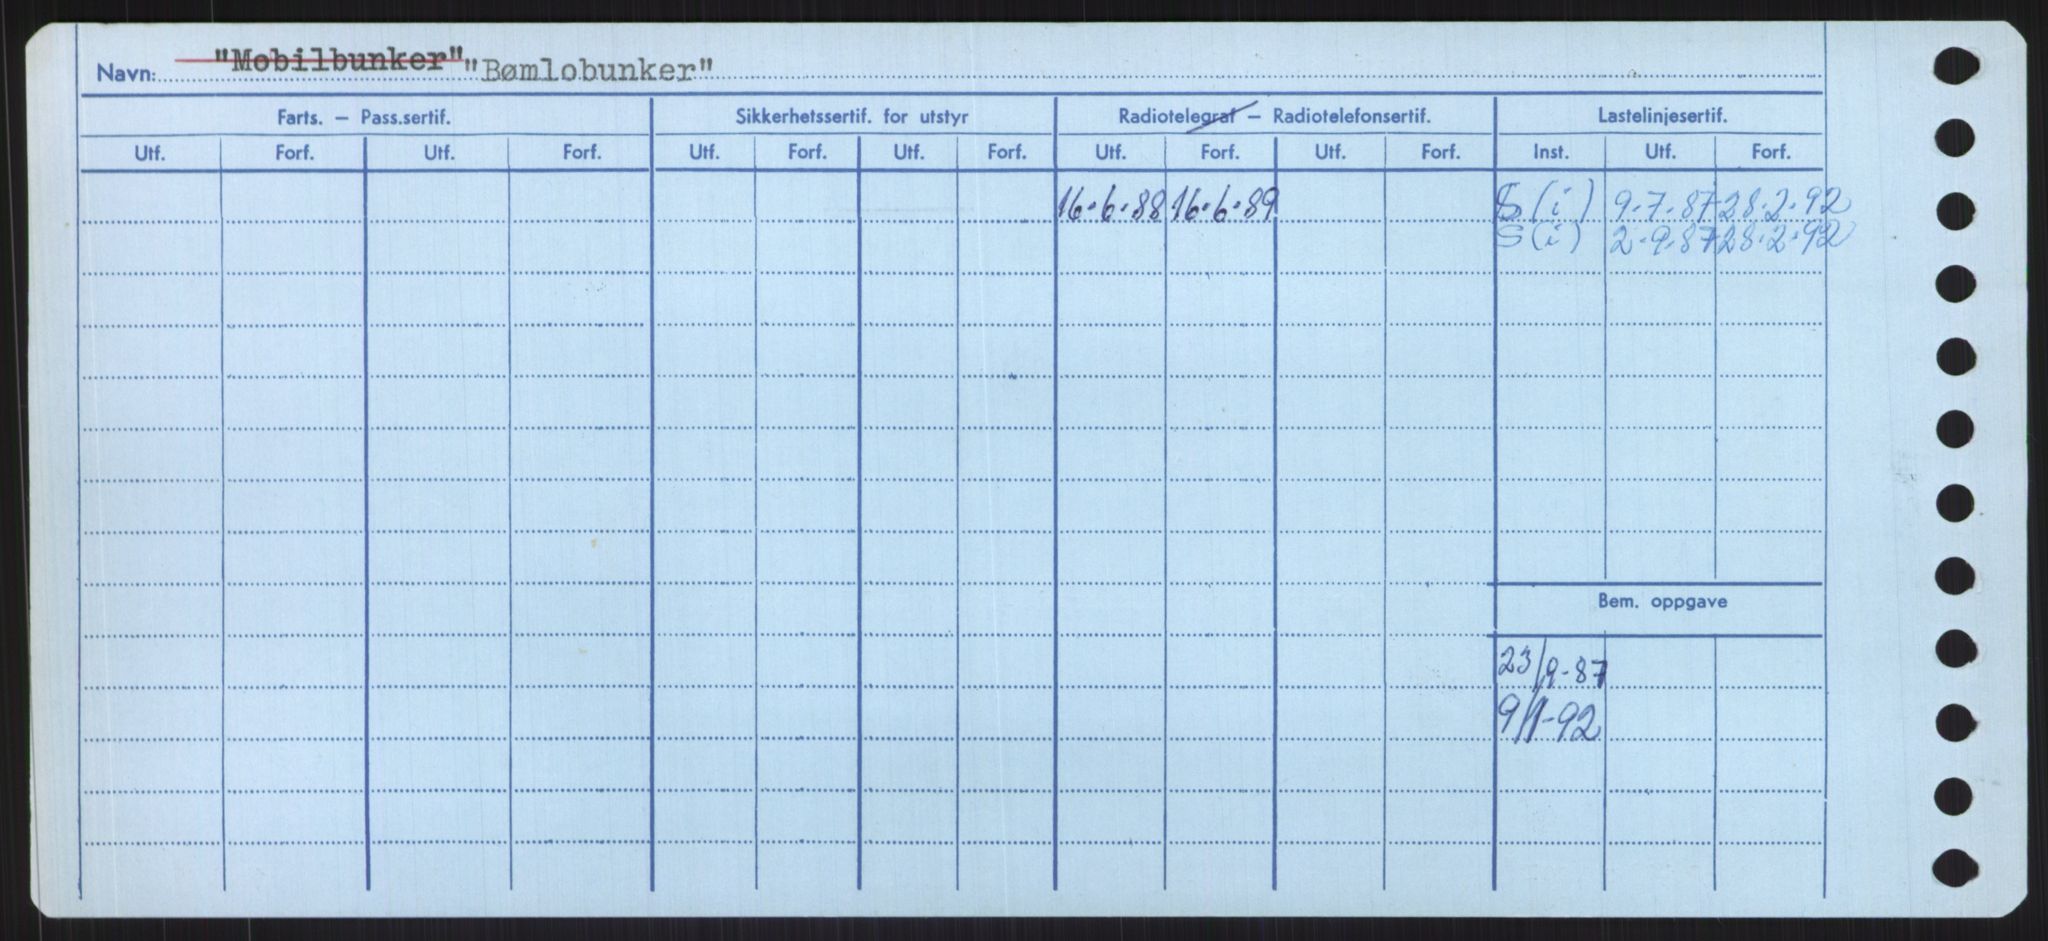 Navn: "Mobilbunker" "Bømlobunker"
Farts. — Pass.sertif. Sikkerhetssertif. for utstyr Radiotelegraf — Radiotelefonsertif. Lastelinjesertif.
Utf. Forf. Utf. Forf. Utf. Forf. Utf. Forf. Utf. Forf. Utf. Forf. Inst. Utf. Forf.
16.6.88 16.6.89 S (i) 9.7.87 28.2.92
S (i) 2.9.87 28.2.92
Bem. oppgave
23/9-87
9/1-92